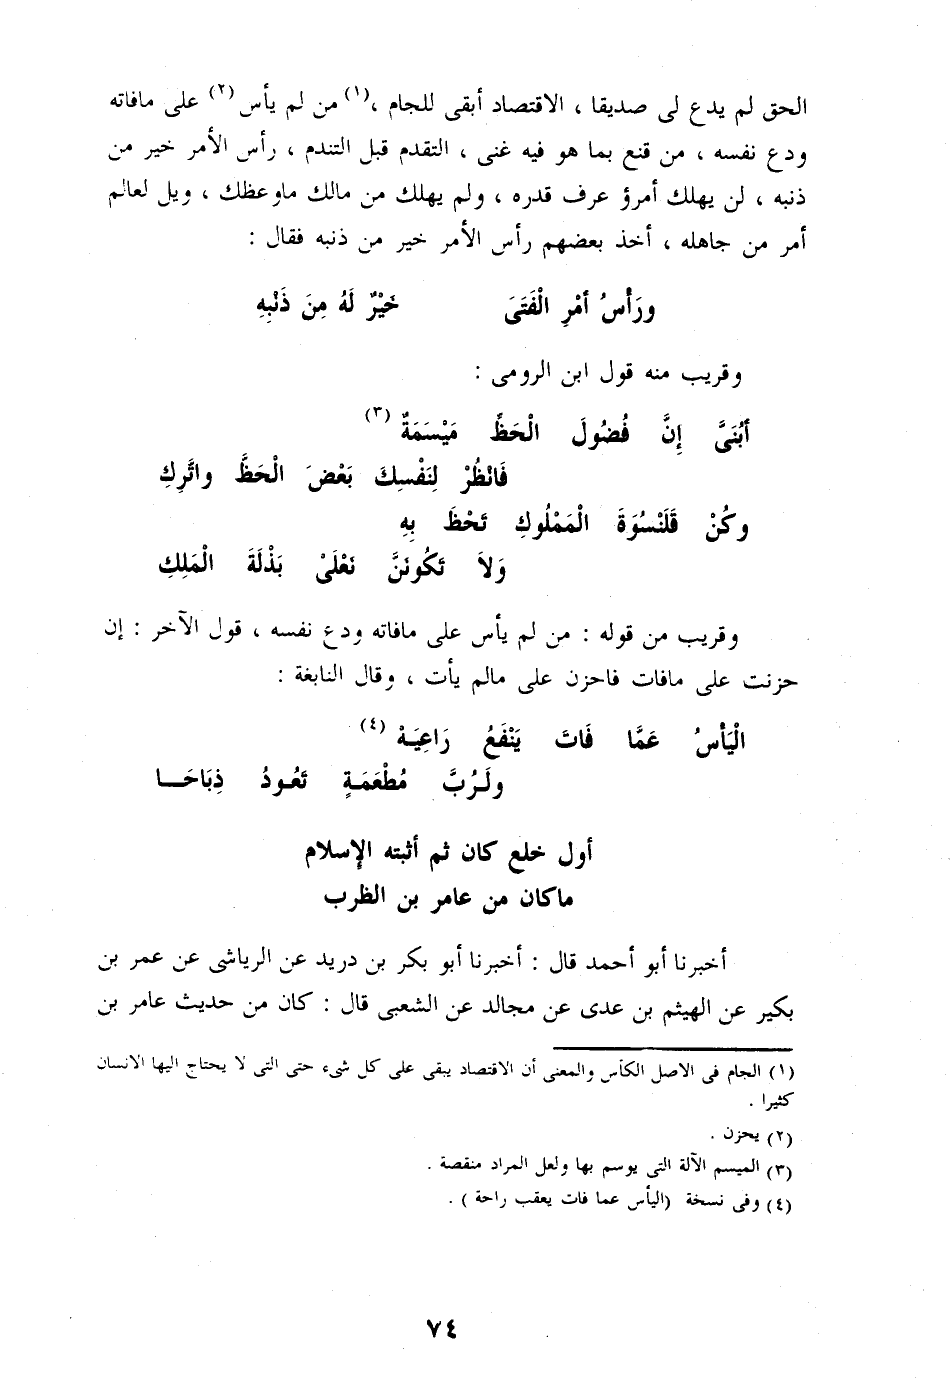 الحق لم يدع لى صديقا ، الاقتصاد أبقى للجام ،(١) من لم يأس(٢) على مافاته
ودع نفسه ، من قنع بما هو فيه غنى ، التقدم قبل التندم ، رأس الأمر خير من
ذنبه ، لن يهلك أمرؤ عرف قدره ، ولم يهلك من مالك ماوعظك ، ويل لعالم
أمر من جاهله ، أخذ بعضهم رأس الأمر خير من ذنبه فقال :
ورَأْسُ أمْرِ الْفَتَىَ خَيْرٌ لَهُ مِنَ ذَنْبِهِ
وقريب منه قول ابن الرومى :
أبُنَىَّ إِنَّ فُضُولَ الْحَظِّ مَيْسَمَةٌ (٣)
فَانْظُرْ لِنَفْسِكَ بَعْضَ الْحَظَّ واتَّرِكِ
وكُنْ قَلَنْسُوَةَ الْمَمْلُوكِ تَحْظَ بِهِ
وَلاَ تَكُونَنَّ نَعْلَىْ بَذْلَةَ الْمَلِكِ
وقريب من قوله : من لم يأس على مافاته ودع نفسه ، قول الآخر : إن
حزنت على مافات فاحزن على مالم يأت ، وقال النابغة :
الْيَأْسُ عَمَّا فَاتَ يَنْفَعُ رَاعِيَهْ (٤)
ولَرُبَّ مُطْعَمَةٍ تَعُودُ ذِبَاحَا
أول خلع كان ثم أثبته الإسلام
ماكان من عامر بن الظرب
أخبرنا أبو أحمد قال : أخبرنا أبو بكر بن دريد عن الرياشى عن عمر بن
بكير عن الهيثم بن عدى عن مجالد عن الشعبى قال : كان من حديث عامر بن
(١) الجام فى الاصل الكأس والمعنى أن الاقتصاد يبقى على كل شىء حتى التى لا يحتاج اليها الانسان
كثيرا .
(٢) يحزن .
(٣) الميسم الآلة التى يوسم بها ولعل المراد منقصة .
(٤) وفى نسخة (اليأس عما فات يعقب راحة ) .
٧٤